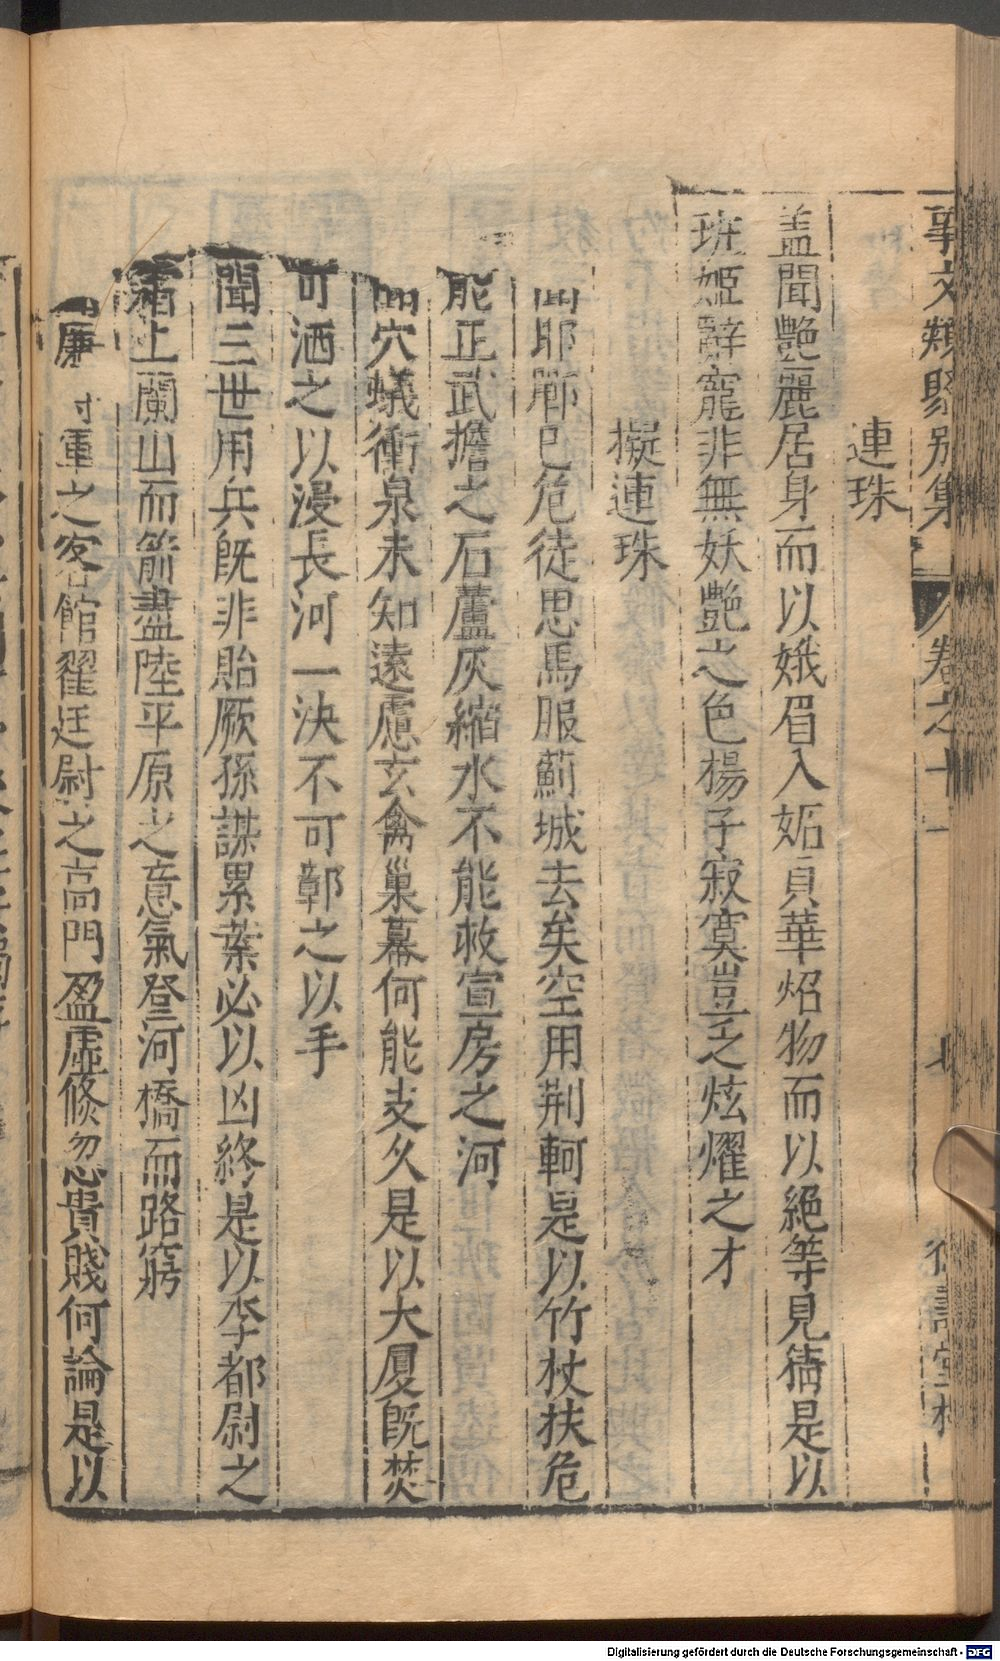 事文類聚別集
卷之十一
連珠
盖聞艷麗居身而以娥眉入妬貞華炤物而以絕等見猜是以
班姬辭寵非無妖艷之色楊子寂寞豈乏炫燿之才
擬連珠
耶鄲已危徒思馬服薊城去矣空用荆軻是以竹杖扶危
能正武擔之石蘆灰縮水不能救宣房之河
穴蟻衝泉未知遠慮玄禽巢幕何能支久是以大厦旣焚
可洒之以浸長河一決不可鄣之以手
聞三世用兵旣非貽厥孫謀累葉必以凶終是以李都尉之
霜上蘭山而箭盡陸平原之意氣登河橋而路窮
廉 軍之客館翟廷尉之高門盈虛倏忽貴賤何論是以
Digitalisierung gefördert durch die Deutsche Forschungsgemeinschaft - DFG